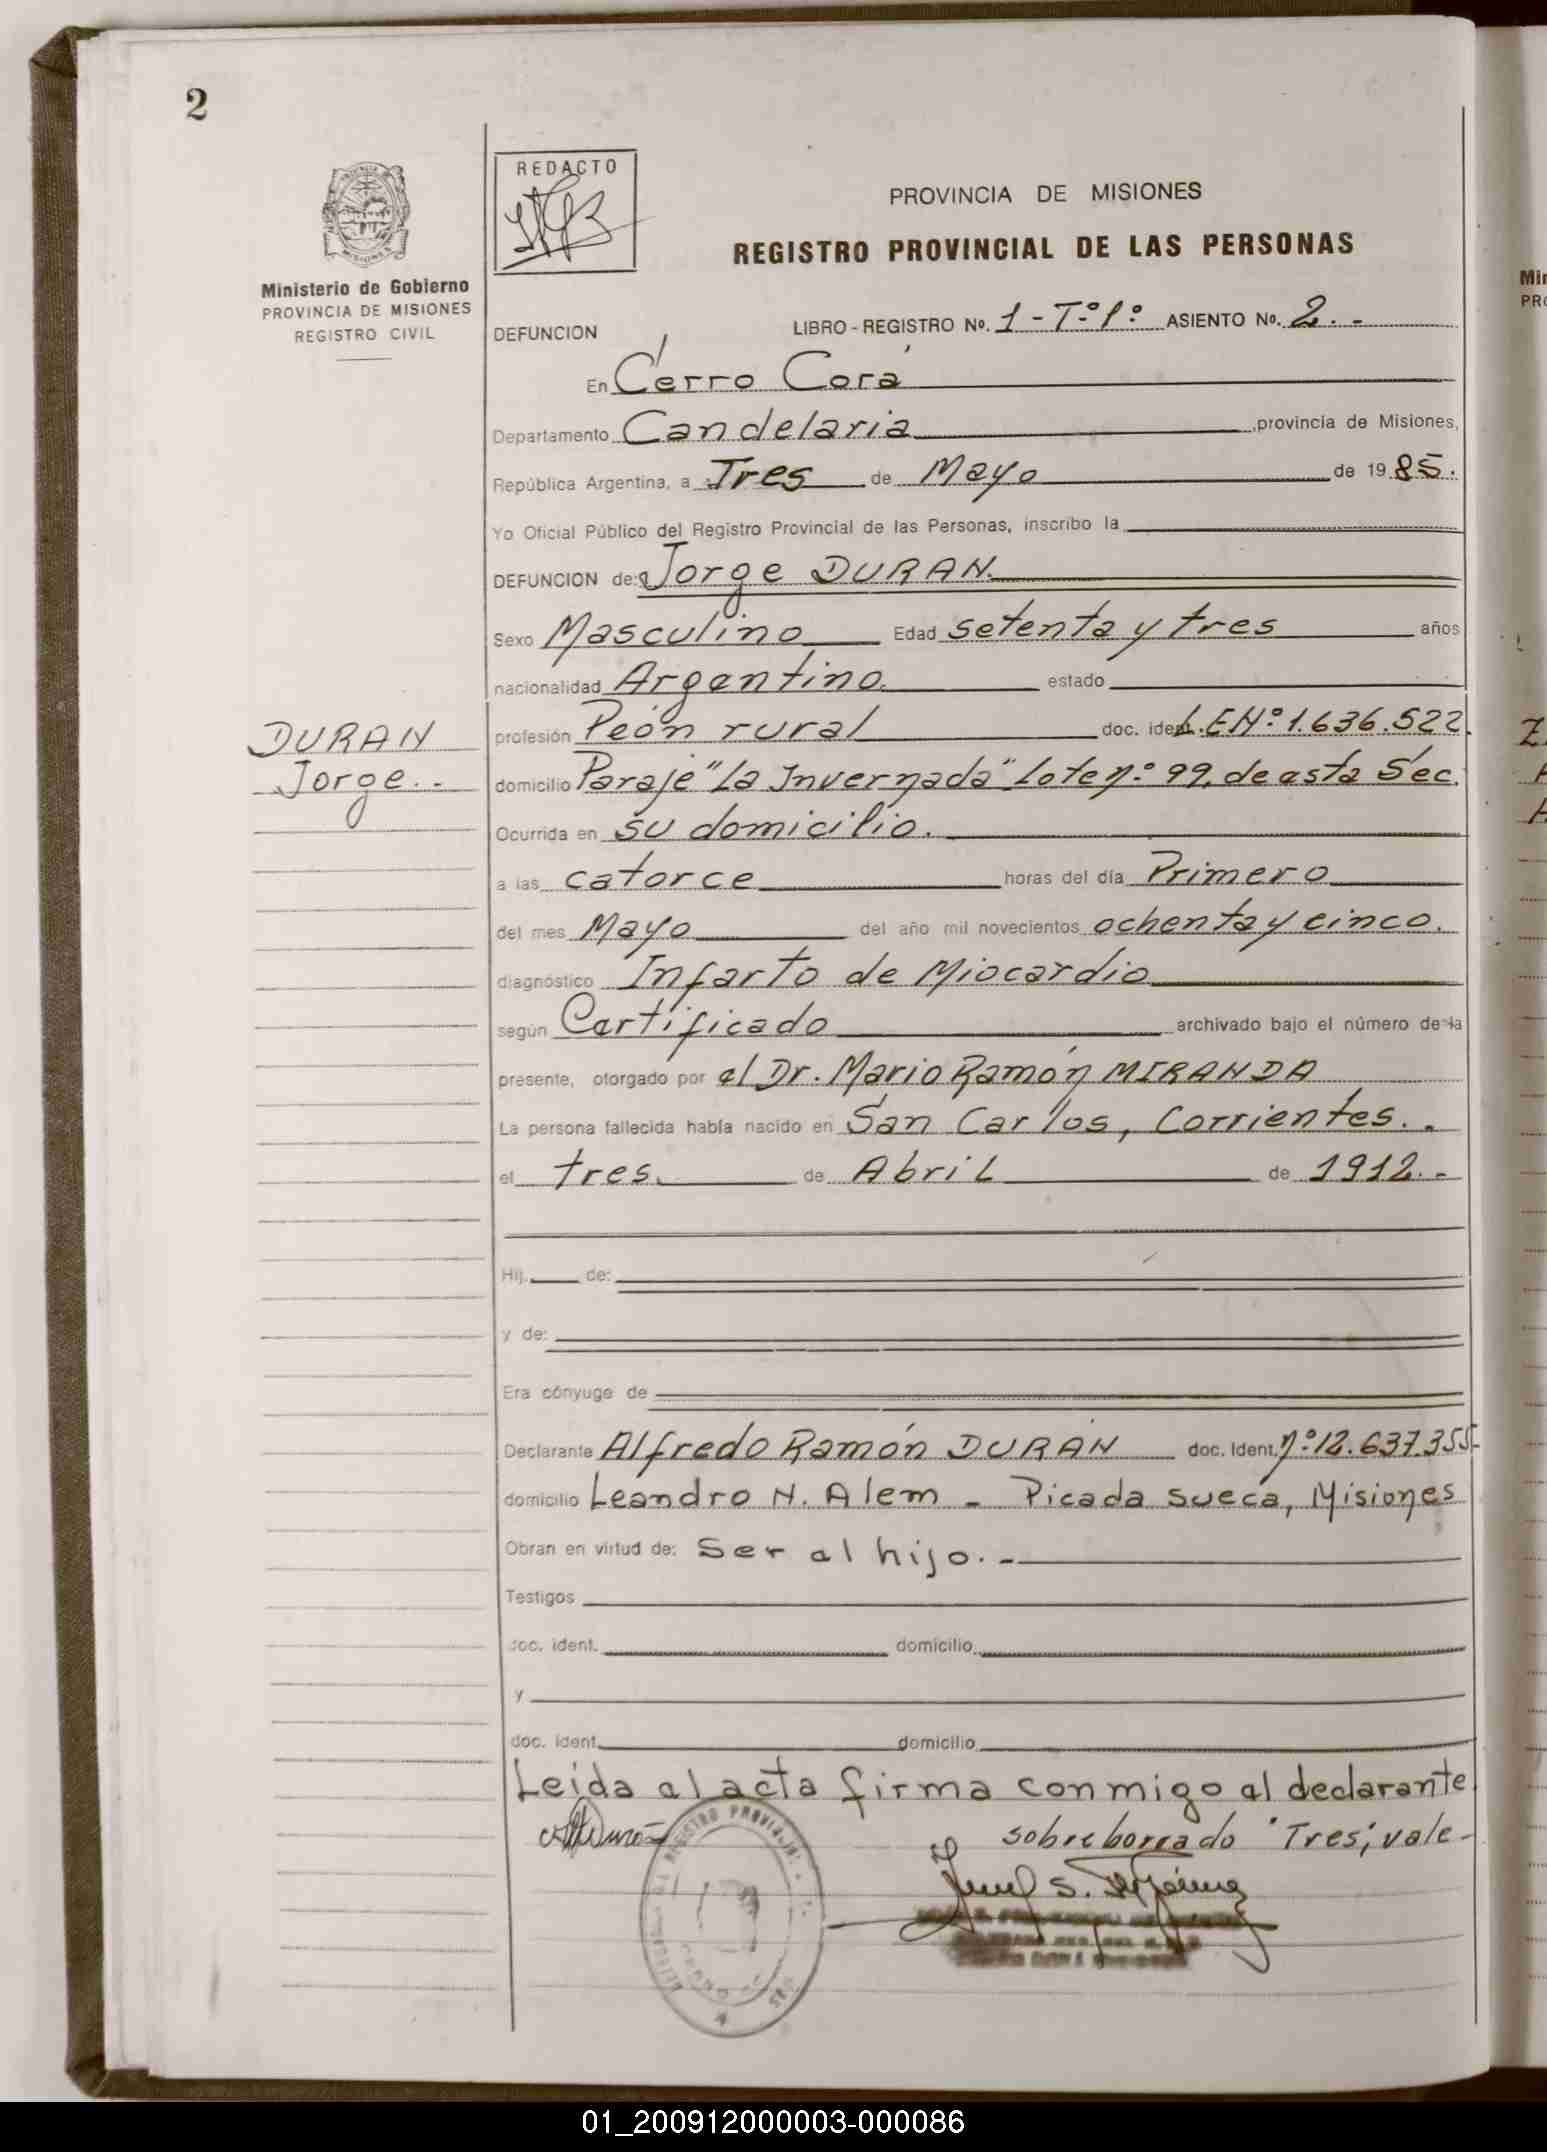 2
REDACTO
PROVINCIA DE MISIONES
REGISTRO PROVINCIAL DE LAS PERSONAS
Ministerio de Gobierno
PROVINCIA DE MISIONES
REGISTRO CIVIL
DEFUNCION LIBRO - REGISTRO No. 1 - Tº 1º ASIENTO No. 2. -
En Cerro Corá
Departamento Candelaria provincia de Misiones,
República Argentina, a Tres de Mayo de 1985.
Yo Oficial Público del Registro Provincial de las Personas, inscribo la
DEFUNCION de: Jorge DURAN.
Sexo Masculino Edad setenta y tres años
nacionalidad Argentino. estado
DURAN
Jorge. -
profesión Peón rural doc. ident. L.E Nº 1.636.522.
domicilio Paraje "La Invernada" Lote nº 99, de esta Sec.
Ocurrida en su domicilio.
a las catorce horas del día Primero
del mes Mayo del año mil novecientos ochenta y cinco.
diagnóstico Infarto de Miocardio
según Certificado archivado bajo el número de la
presente, otorgado por el Dr. Mario Ramón MIRANDA
La persona fallecida había nacido en San Carlos, Corrientes. .
el tres. de Abril de 1912. -
Hij de:
y de:
Era cónyuge de
Declarante Alfredo Ramón DURAN doc. Ident. nº 12.637.355-
domicilio Leandro N. Alem - Picada sueca, Misiones
Obran en virtud de: Ser el hijo. -
Testigos
doc. ident. domicilio
y
doc. ident. domicilio
Leida el acta firma conmigo el declarante
sobreborrado "Tres", vale-
01_200912000003-000086